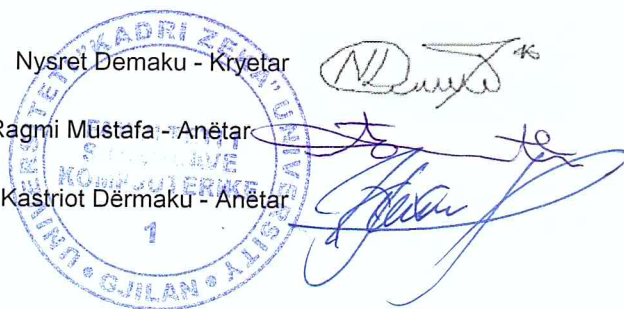 Nysret Demaku - Kryetar
Ragmi Mustafa - Anëtar
Kastriot Dërmaku - Anëtar
UNIVERSITETI "KADRI ZEKA" UNIVERSITY
GJILAN
FAKULTETI I
SHKENCAVE
KOMPJUTERIKE
1